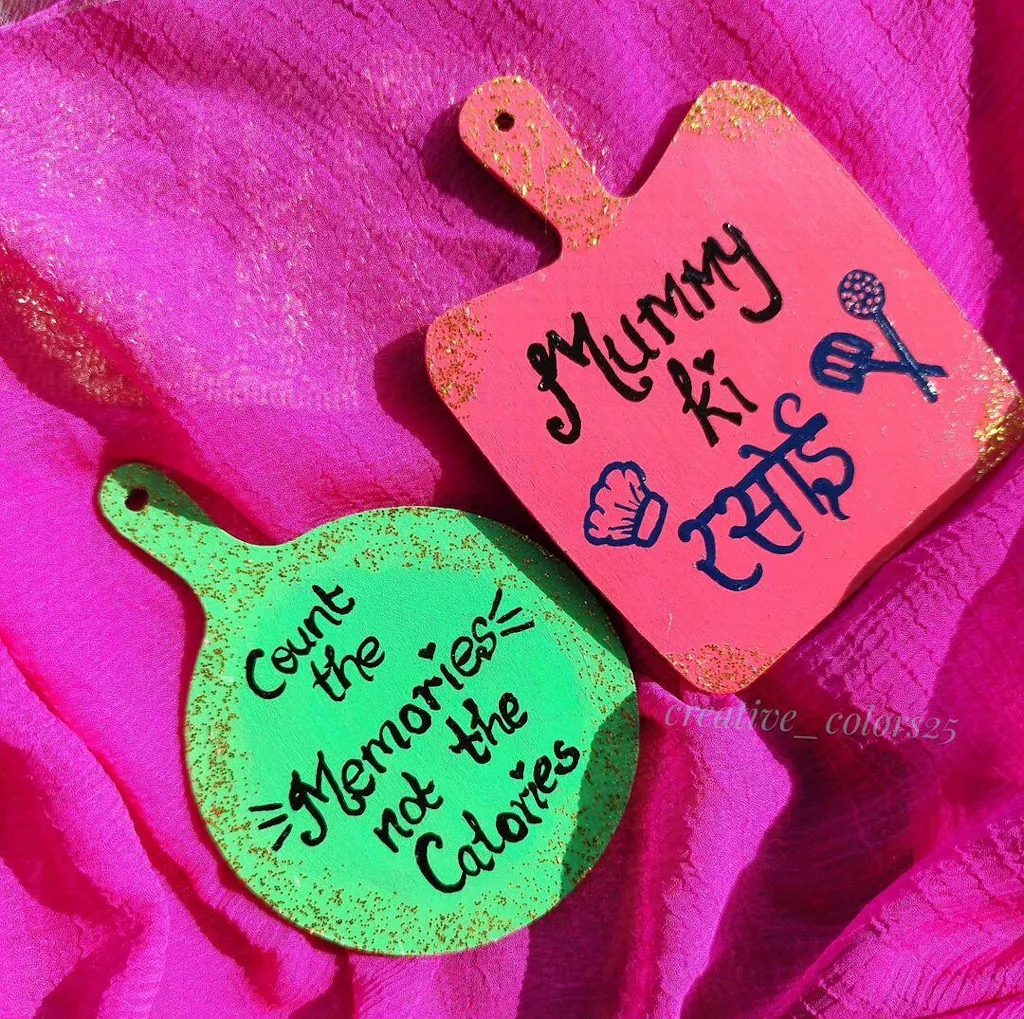 Mummy
ki
रसोई
Count
the
Memories
not the
Calories
creative_colors25